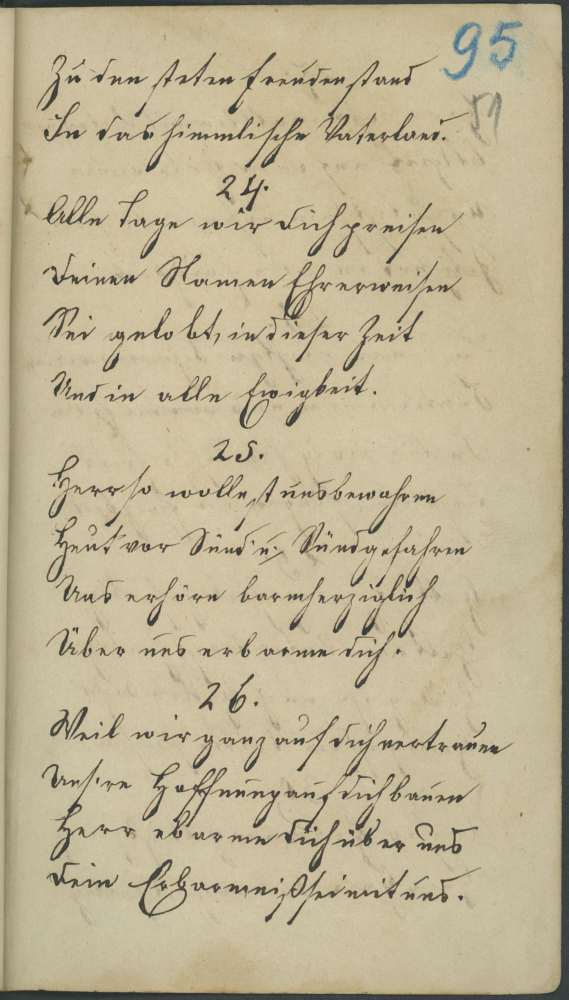 95
51
Zu den steten Freudenstand
In das himmlische Vaterland.
24.
Alle Tage wir dich preisen
Deinen Namen Ehr erweisen
Sei gelobt, in dieser Zeit
Und in alle Ewigkeit.
25.
Herr so wollest uns bewahren
Heut vor Sünd u. Sündgefahren
Uns erhöre barmherziglich
Über uns erbarme dich.
26.
Weil wir ganz auf dich vertrauen
Uns're Hoffnung auf dich bauen
Herr ebarme dich über uns
Dein Erbarmniß sei mit uns.